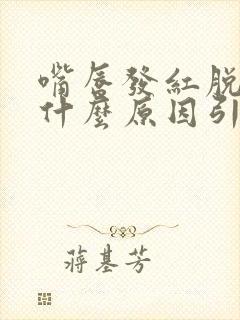 嘴唇發紅脫
什麼原因引
蔣基芳